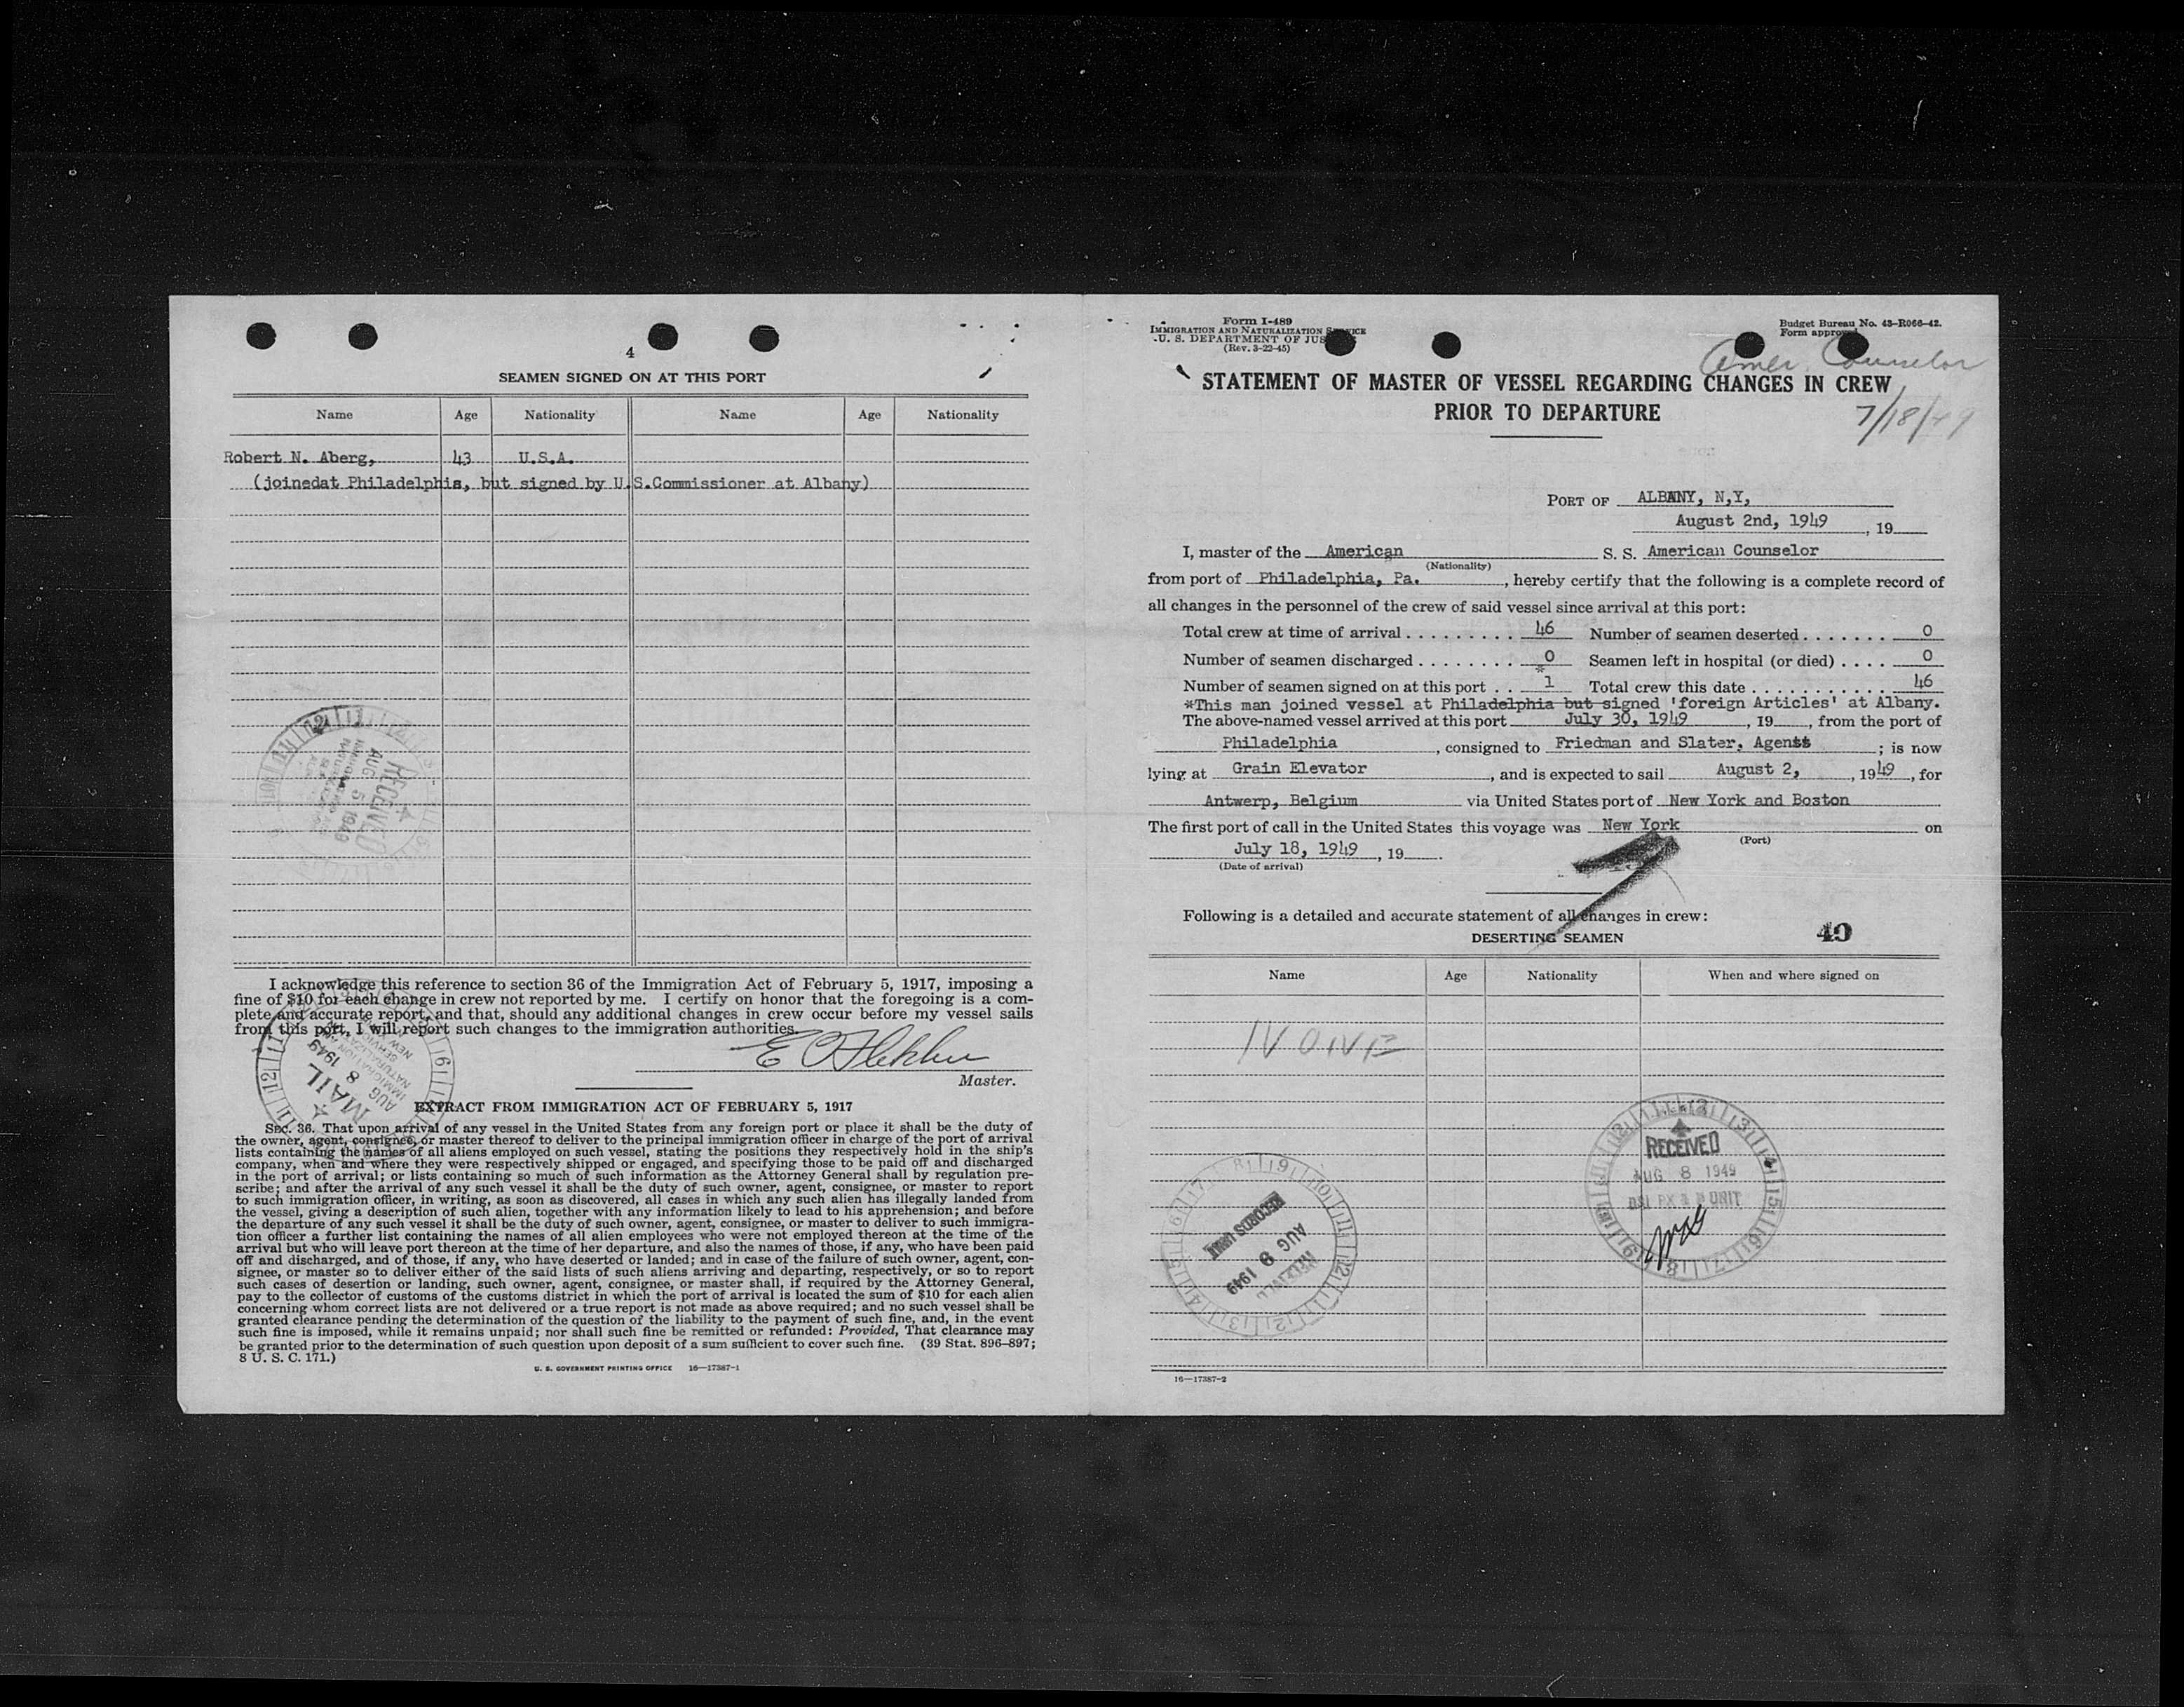 4
SEAMEN SIGNED ON AT THIS PORT
Name Age Nationality Name Age Nationality
Robert N. Aberg, 43 U.S.A.
(joinedat Philadelphia, but signed by U.S.Commissioner at Albany)
RECEIVED
AUG 5 1949
I acknowledge this reference to section 36 of the Immigration Act of February 5, 1917, imposing a
fine of $10 for each change in crew not reported by me. I certify on honor that the foregoing is a com-
plete and accurate report, and that, should any additional changes in crew occur before my vessel sails
from this port, I will report such changes to the immigration authorities.
Master.
MAIL
AUG 8 1949
EXTRACT FROM IMMIGRATION ACT OF FEBRUARY 5, 1917
SEC. 36. That upon arrival of any vessel in the United States from any foreign port or place it shall be the duty of
the owner, agent, consignee, or master thereof to deliver to the principal immigration officer in charge of the port of arrival
lists containing the names of all aliens employed on such vessel, stating the positions they respectively hold in the ship's
company, when and where they were respectively shipped or engaged, and specifying those to be paid off and discharged
in the port of arrival; or lists containing so much of such information as the Attorney General shall by regulation pre-
scribe; and after the arrival of any such vessel it shall be the duty of such owner, agent, consignee, or master to report
to such immigration officer, in writing, as soon as discovered, all cases in which any such alien has illegally landed from
the vessel, giving a description of such alien, together with any information likely to lead to his apprehension; and before
the departure of any such vessel it shall be the duty of such owner, agent, consignee, or master to deliver to such immigra-
tion officer a further list containing the names of all alien employees who were not employed thereon at the time of the
arrival but who will leave port thereon at the time of her departure, and also the names of those, if any, who have been paid
off and discharged, and of those, if any, who have deserted or landed; and in case of the failure of such owner, agent, con-
signee, or master so to deliver either of the said lists of such aliens arriving and departing, respectively, or so to report
such cases of desertion or landing, such owner, agent, consignee, or master shall, if required by the Attorney General,
pay to the collector of customs of the customs district in which the port of arrival is located the sum of $10 for each alien
concerning whom correct lists are not delivered or a true report is not made as above required; and no such vessel shall be
granted clearance pending the determination of the question of the liability to the payment of such fine, and, in the event
such fine is imposed, while it remains unpaid; nor shall such fine be remitted or refunded: Provided, That clearance may
be granted prior to the determination of such question upon deposit of a sum sufficient to cover such fine. (39 Stat. 896–897;
8 U. S. C. 171.)
U. S. GOVERNMENT PRINTING OFFICE 16—17387-1
Form I-489
IMMIGRATION AND NATURALIZATION SERVICE
U. S. DEPARTMENT OF JUS
(Rev. 3-22-45)
Budget Bureau No. 43-R066-42.
Form approved
Amer. Counselor
7/18/49
STATEMENT OF MASTER OF VESSEL REGARDING CHANGES IN CREW
PRIOR TO DEPARTURE
PORT OF ALBANY, N,Y,
August 2nd, 1949, 19
I, master of the American S. S. American Counselor
(Nationality)
from port of Philadelphia, Pa., hereby certify that the following is a complete record of
all changes in the personnel of the crew of said vessel since arrival at this port:
Total crew at time of arrival 46 Number of seamen deserted 0
Number of seamen discharged 0 Seamen left in hospital (or died) 0
Number of seamen signed on at this port *1 Total crew this date 46
*This man joined vessel at Philadelphia but signed 'foreign Articles' at Albany.
The above-named vessel arrived at this port July 30, 1949, 19, from the port of
Philadelphia, consigned to Friedman and Slater, Agents; is now
lying at Grain Elevator, and is expected to sail August 2, 1949, for
Antwerp, Belgium via United States port of New York and Boston
The first port of call in the United States this voyage was New York on
(Port)
July 18, 1949, 19.
(Date of arrival)
Following is a detailed and accurate statement of all changes in crew:
40
DESERTING SEAMEN
Name Age Nationality When and where signed on
NONE
RECEIVED
AUG 8 1949
RECORDS UNIT
AUG 9 1949
RECEIVED
16—17387-2